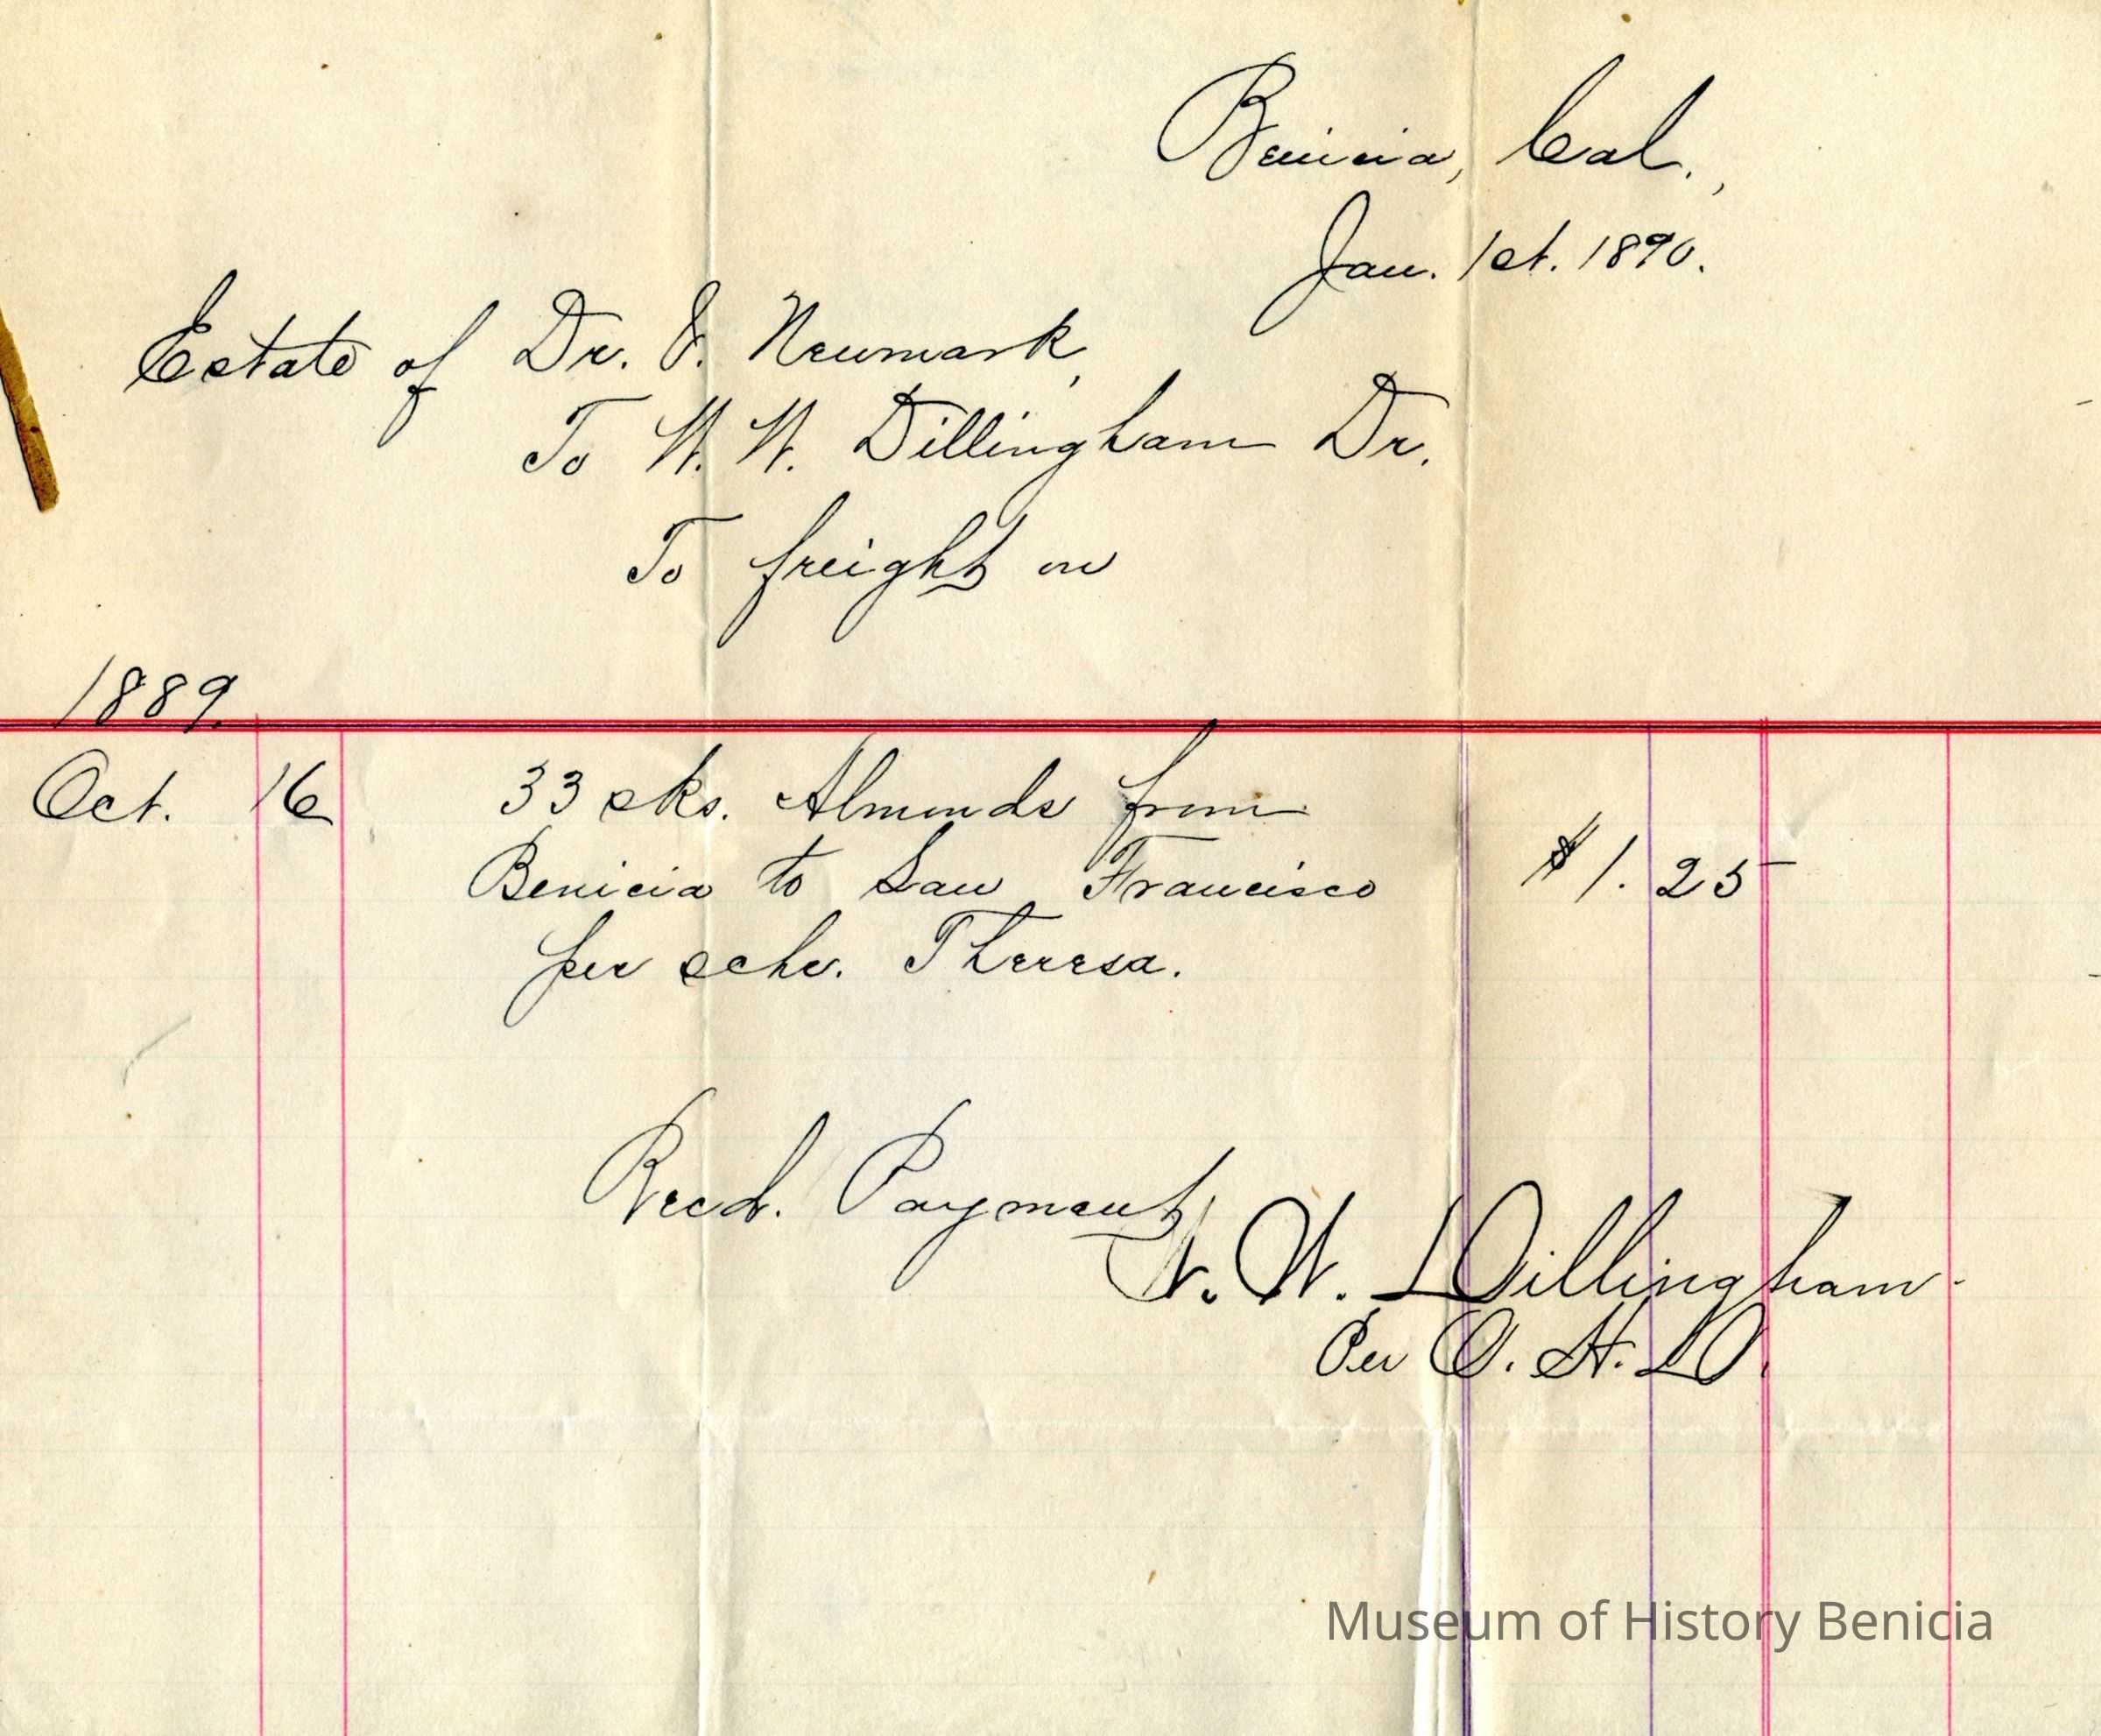 Benicia, Cal.,
Jan. 1st. 1890.
Estate of Dr. J. Newmark,
To W. W. Dillingham Dr.
To freight on
1889.
Oct. 16 33 sks. Almonds from
Benicia to San Francisco $1.25
per schr. Theresa.
Recd. Payment
W. W. Dillingham.
Per O. H. D.
Museum of History Benicia